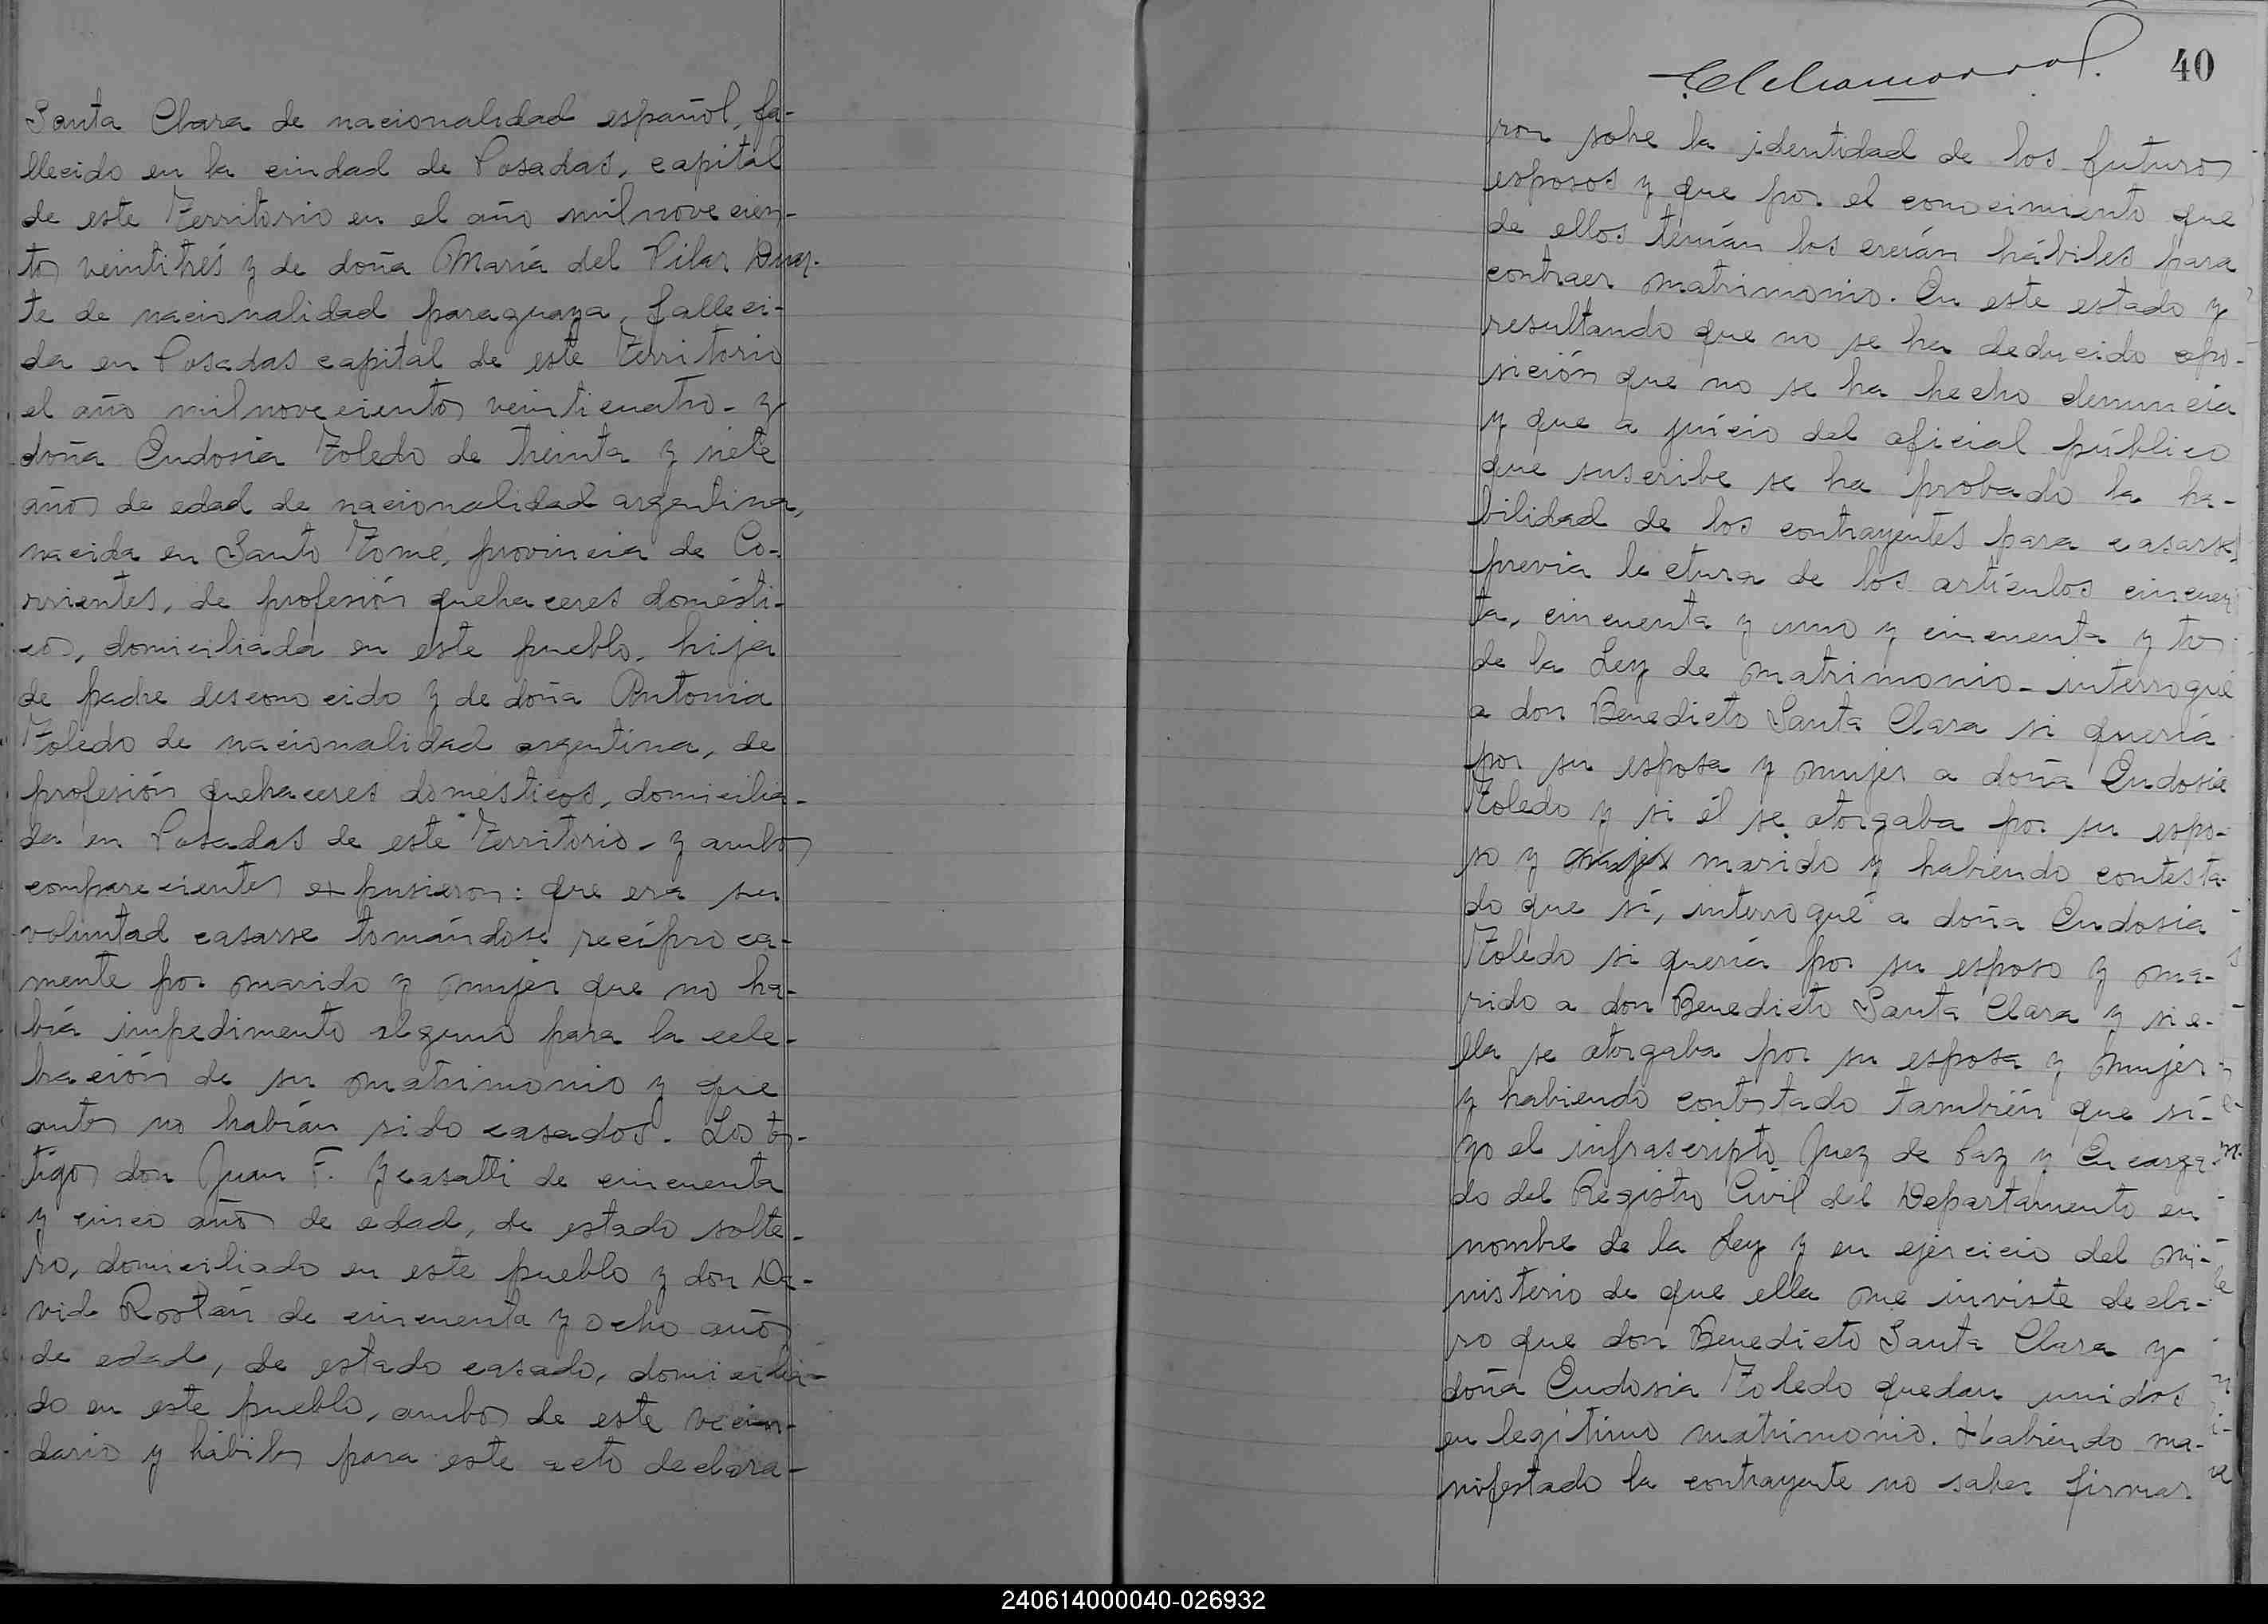 Santa Clara de nacionalidad español, fa-
llecido en la ciudad de Posadas, capital
de este Territorio en el año mil novecien-
tos veintitrés y de doña María del Pilar Duar-
te de nacionalidad paraguaya, falleci-
da en Posadas capital de este Territorio
el año mil novecientos veinticuatro - y
doña Eudosia Toledo de treinta y siete
años de edad de nacionalidad argentina,
nacida en Santo Tome, provincia de Co-
rrientes, de profesión quehaceres domésti-
cos, domiciliada en este pueblo, hija
de padre desconocido y de doña Antonia
Toledo de nacionalidad argentina, de
profesión quehaceres domésticos, domicilia-
da en Posadas de este Territorio - y ambos
comparecientes expusieron: que era su
voluntad casarse tomándose recíproca-
mente por marido y mujer que no ha-
bía impedimento alguno para la cele-
bración de su matrimonio y que
antes no habían sido casados. Los tes-
tigos don Juan F. de cincuenta
y cinco años de edad, de estado solte-
ro, domiciliado en este pueblo y don Da-
vid Rostán de cincuenta y ocho años
de edad, de estado casado, domicilia-
do en este pueblo, ambos de este vecin-
dario y hábiles para este acto declara-
40
ron sobre la identidad de los futuros
esposos y que por el conocimiento que
de ellos tenían los creían hábiles para
contraer matrimonio. En este estado y
resultando que no se ha deducido opo-
sición que no se ha hecho denuncia
y que a juicio del oficial público
que suscribe se ha probado la ha-
bilidad de los contrayentes para casarse,
previa lectura de los artículos cincuen-
ta, cincuenta y uno y cincuenta y tres
de la Ley de matrimonio - interrogué
a don Benedicto Santa Clara si quería
por su esposa y mujer a doña Eudosia
Toledo y si él se otorgaba por su espo-
so y mujer marido y habiendo contesta-
do que sí, interrogué a doña Eudosia
Toledo si quería por su esposo y ma-
rido a don Benedicto Santa Clara y si e-
lla se otorgaba por su esposa y mujer -
y habiendo contestado también que sí -
yo el infrascripto Juez de Paz y Encarga-
do del Registro Civil del Departamento en
nombre de la Ley y en ejercicio del mi-
nisterio de que ella me inviste decla-
ro que don Benedicto Santa Clara y
doña Eudosia Toledo quedan unidos
en legítimo matrimonio. Habiendo ma-
nifestado la contrayente no saber firmar
240614000040-026932